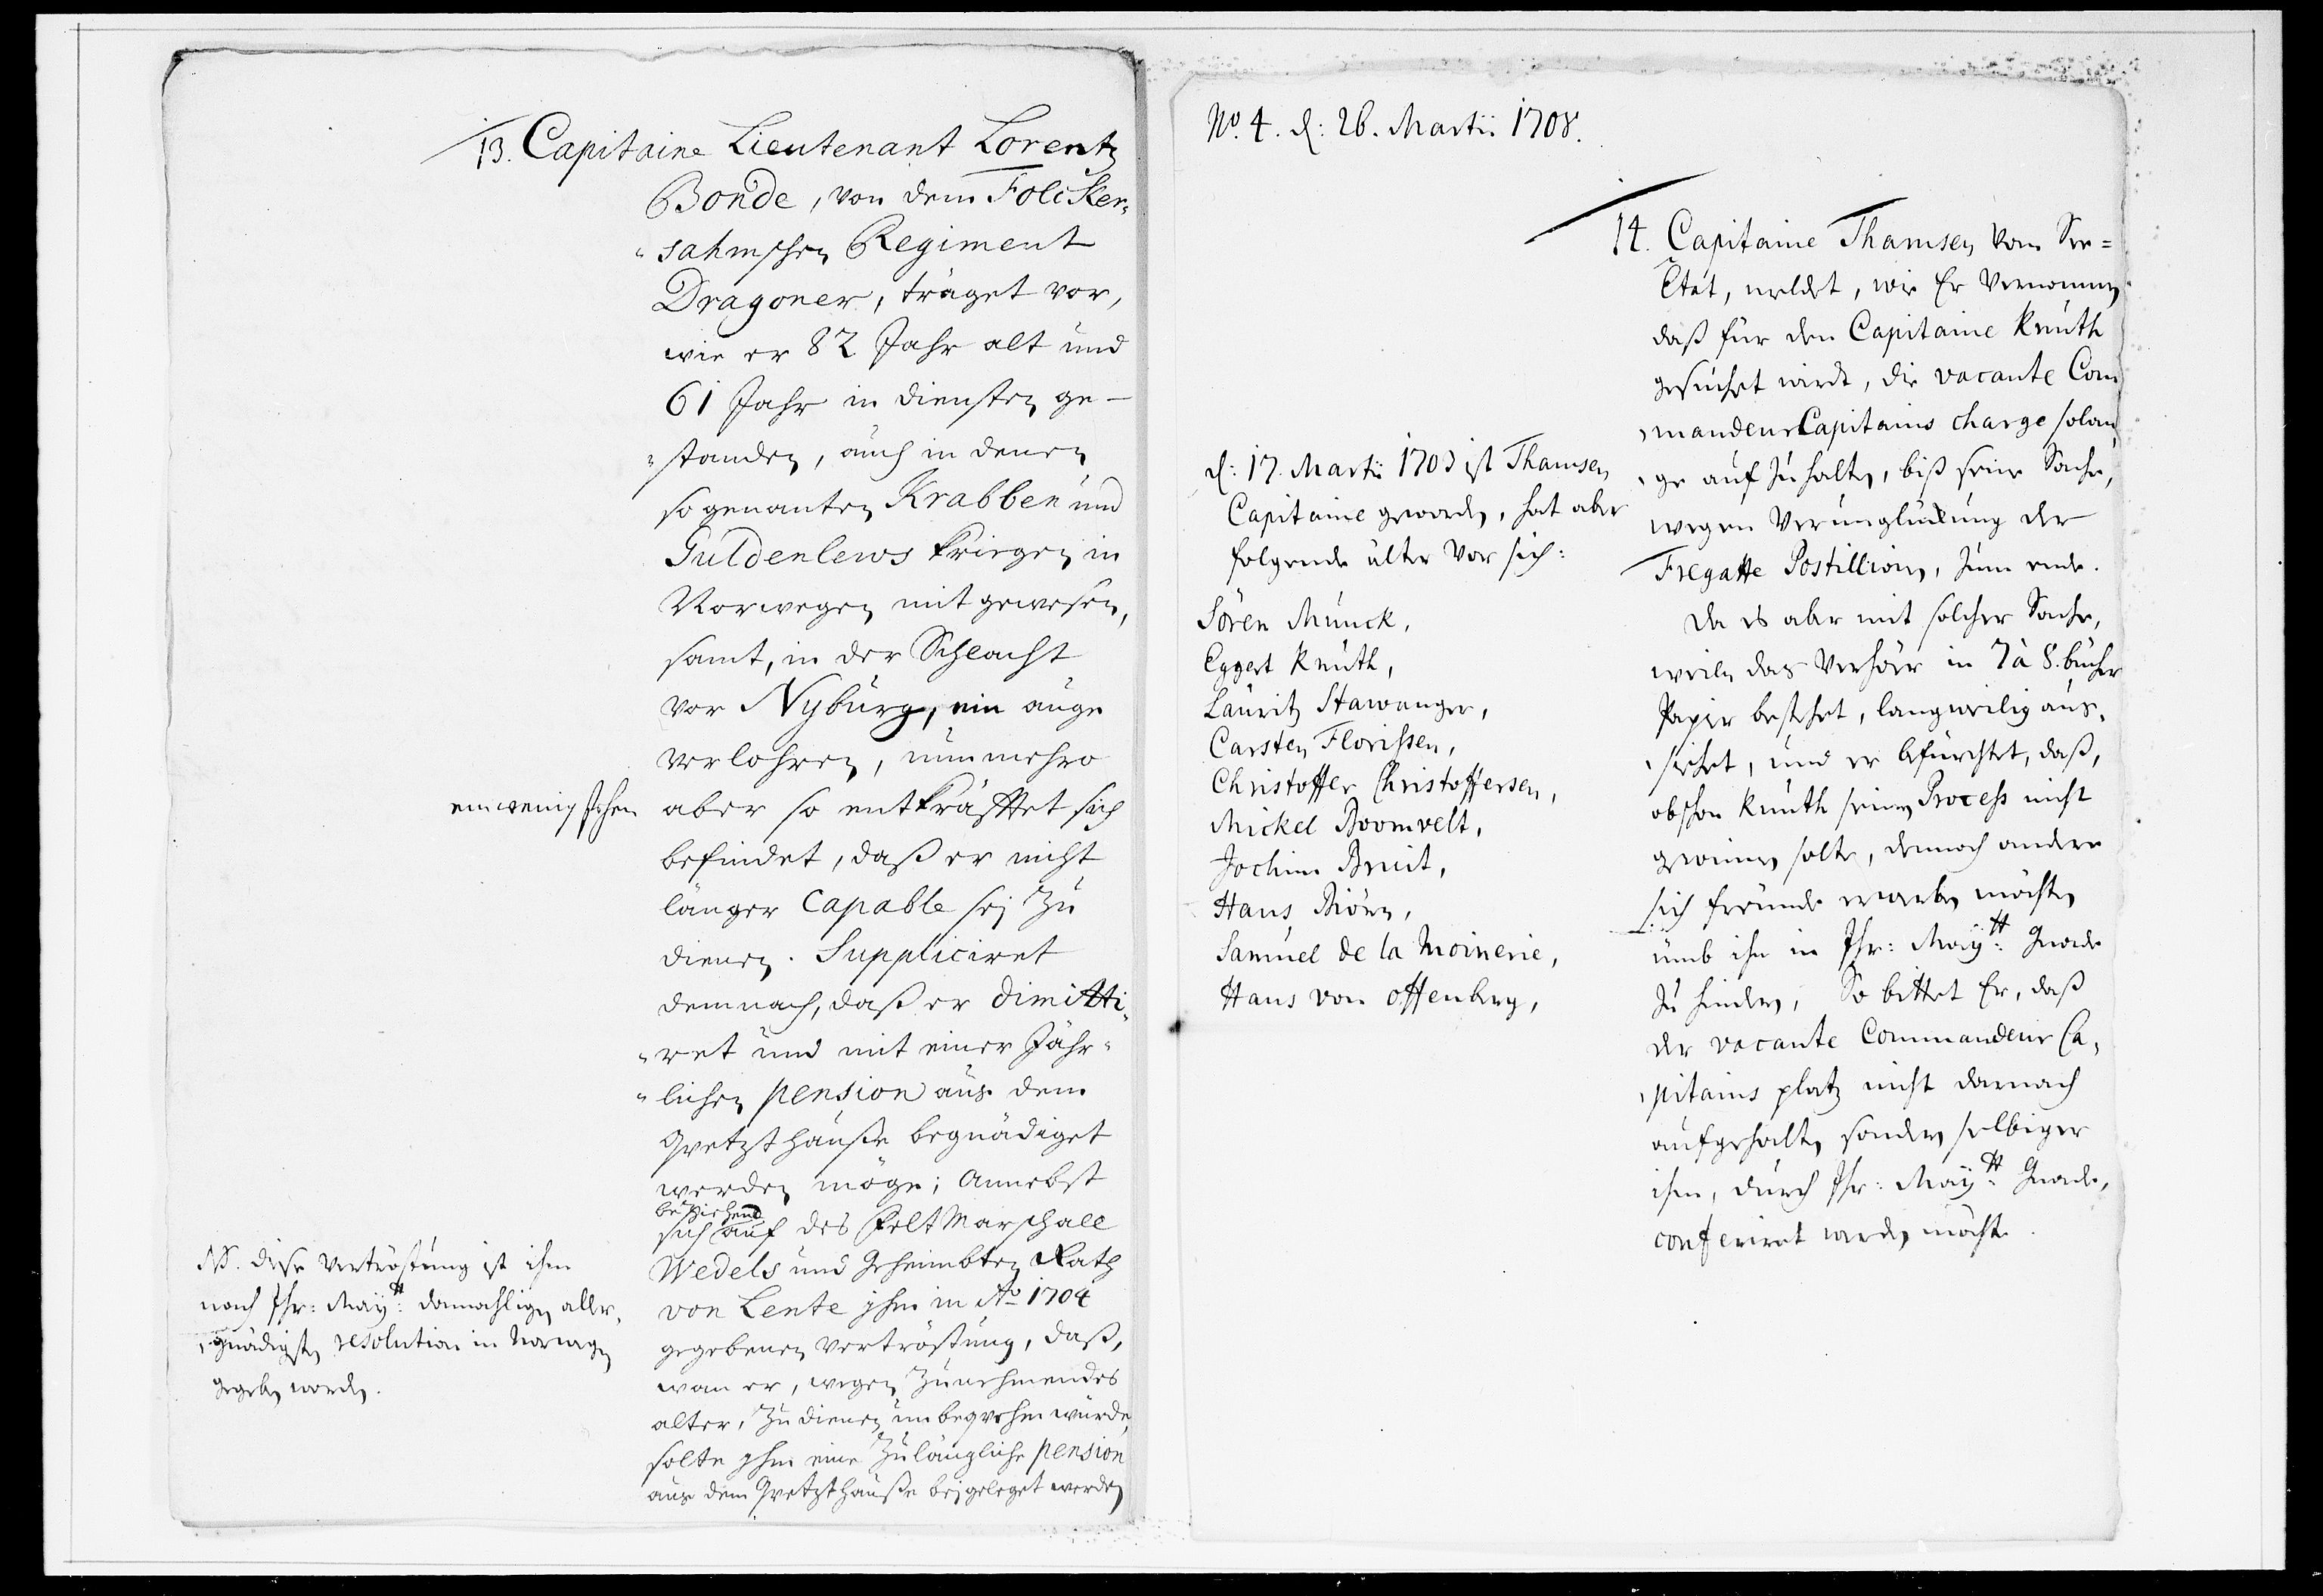 13. Capitaine Lieutenant Lorentz
Bonde, von dem Folcker-
sahmschen Regiment
Dragoner, träget vor,
wie er 82 Jahr alt und
61 Jahr in diensten ge-
standen, auch in denen
so genanten Krabben und
Guldenlews kriegen in
Norwegen mit gewesen,
samt, in der Schlacht
vor Nyburg, ein auge
verlohren, nunmehro
ein wenig sehen
aber so entkräfftet sich
befindet, daß er nicht
länger Capable sej zu
dienen. Suppliciret
demnach, daß er dimitti-
ret und mit einer Jähr-
lichen pension aus dem
Qvetzthause begnädiget
werden möge; Annebst
beziehend
sich auf des Felt Marschall
Wedels und Geheimbten Rath
von Lente jhm in Ao 1704
gegebenen vertröstung, daß,
wan er, wegen zunehmendes
alter, zu dienen unbeqvehm würde,
solte jhm eine zulängliche pension
aus dem Qvetzthause bejgeleget werden
NB. diese vertröstung ist ihm
nach Ihr: Maytt: damahligen aller-
gnädigsten resolution in Norwegen
gegeben worden.
No. 4. d: 26. Martii 1708.
14. Capitaine Thamsen vom See-
Etat, meldet, wie Er vernommen
daß für den Capitaine Knuth
gesuchet wirdt, die vacante Com
mandeur Capitains charge solan
ge auf zu halten, biß seine Sache,
wegen Verunglückung der
Fregatte Postillion, zum ende.
Da es aber mit solcher Sache,
weiln das Verhör in 7 à 8. bücher
Papier bestehet, langweilig aus-
siehet, und er befürchtet, daß,
obschon Knuth seinen Process nicht
gewinnen solte, dennoch andere
sich freunde erwerben möchten
umb ihn in Ihr: Maytt: Gnade
zu hindern, So bittet Er, daß
der vacante Commandeur Ca-
pitains platz nicht darnach
aufgehalten sondern selbiger
ihm, durch Ihr: Maytt: Gnade,
conferiret werden möchte.
d: 17. Martii 1703 ist Thamsen
Capitaine geworden, hat aber
folgende älter vor sich:
Sören Munck,
Eggert Knuth,
Lauritz Stawanger,
Carsten Florissen,
Christoffer Christoffersen,
Mickel Boomvelt,
Jochim Bruit,
Hans Biörn,
Samuel de la Moinerie,
Hans von Offenberg,